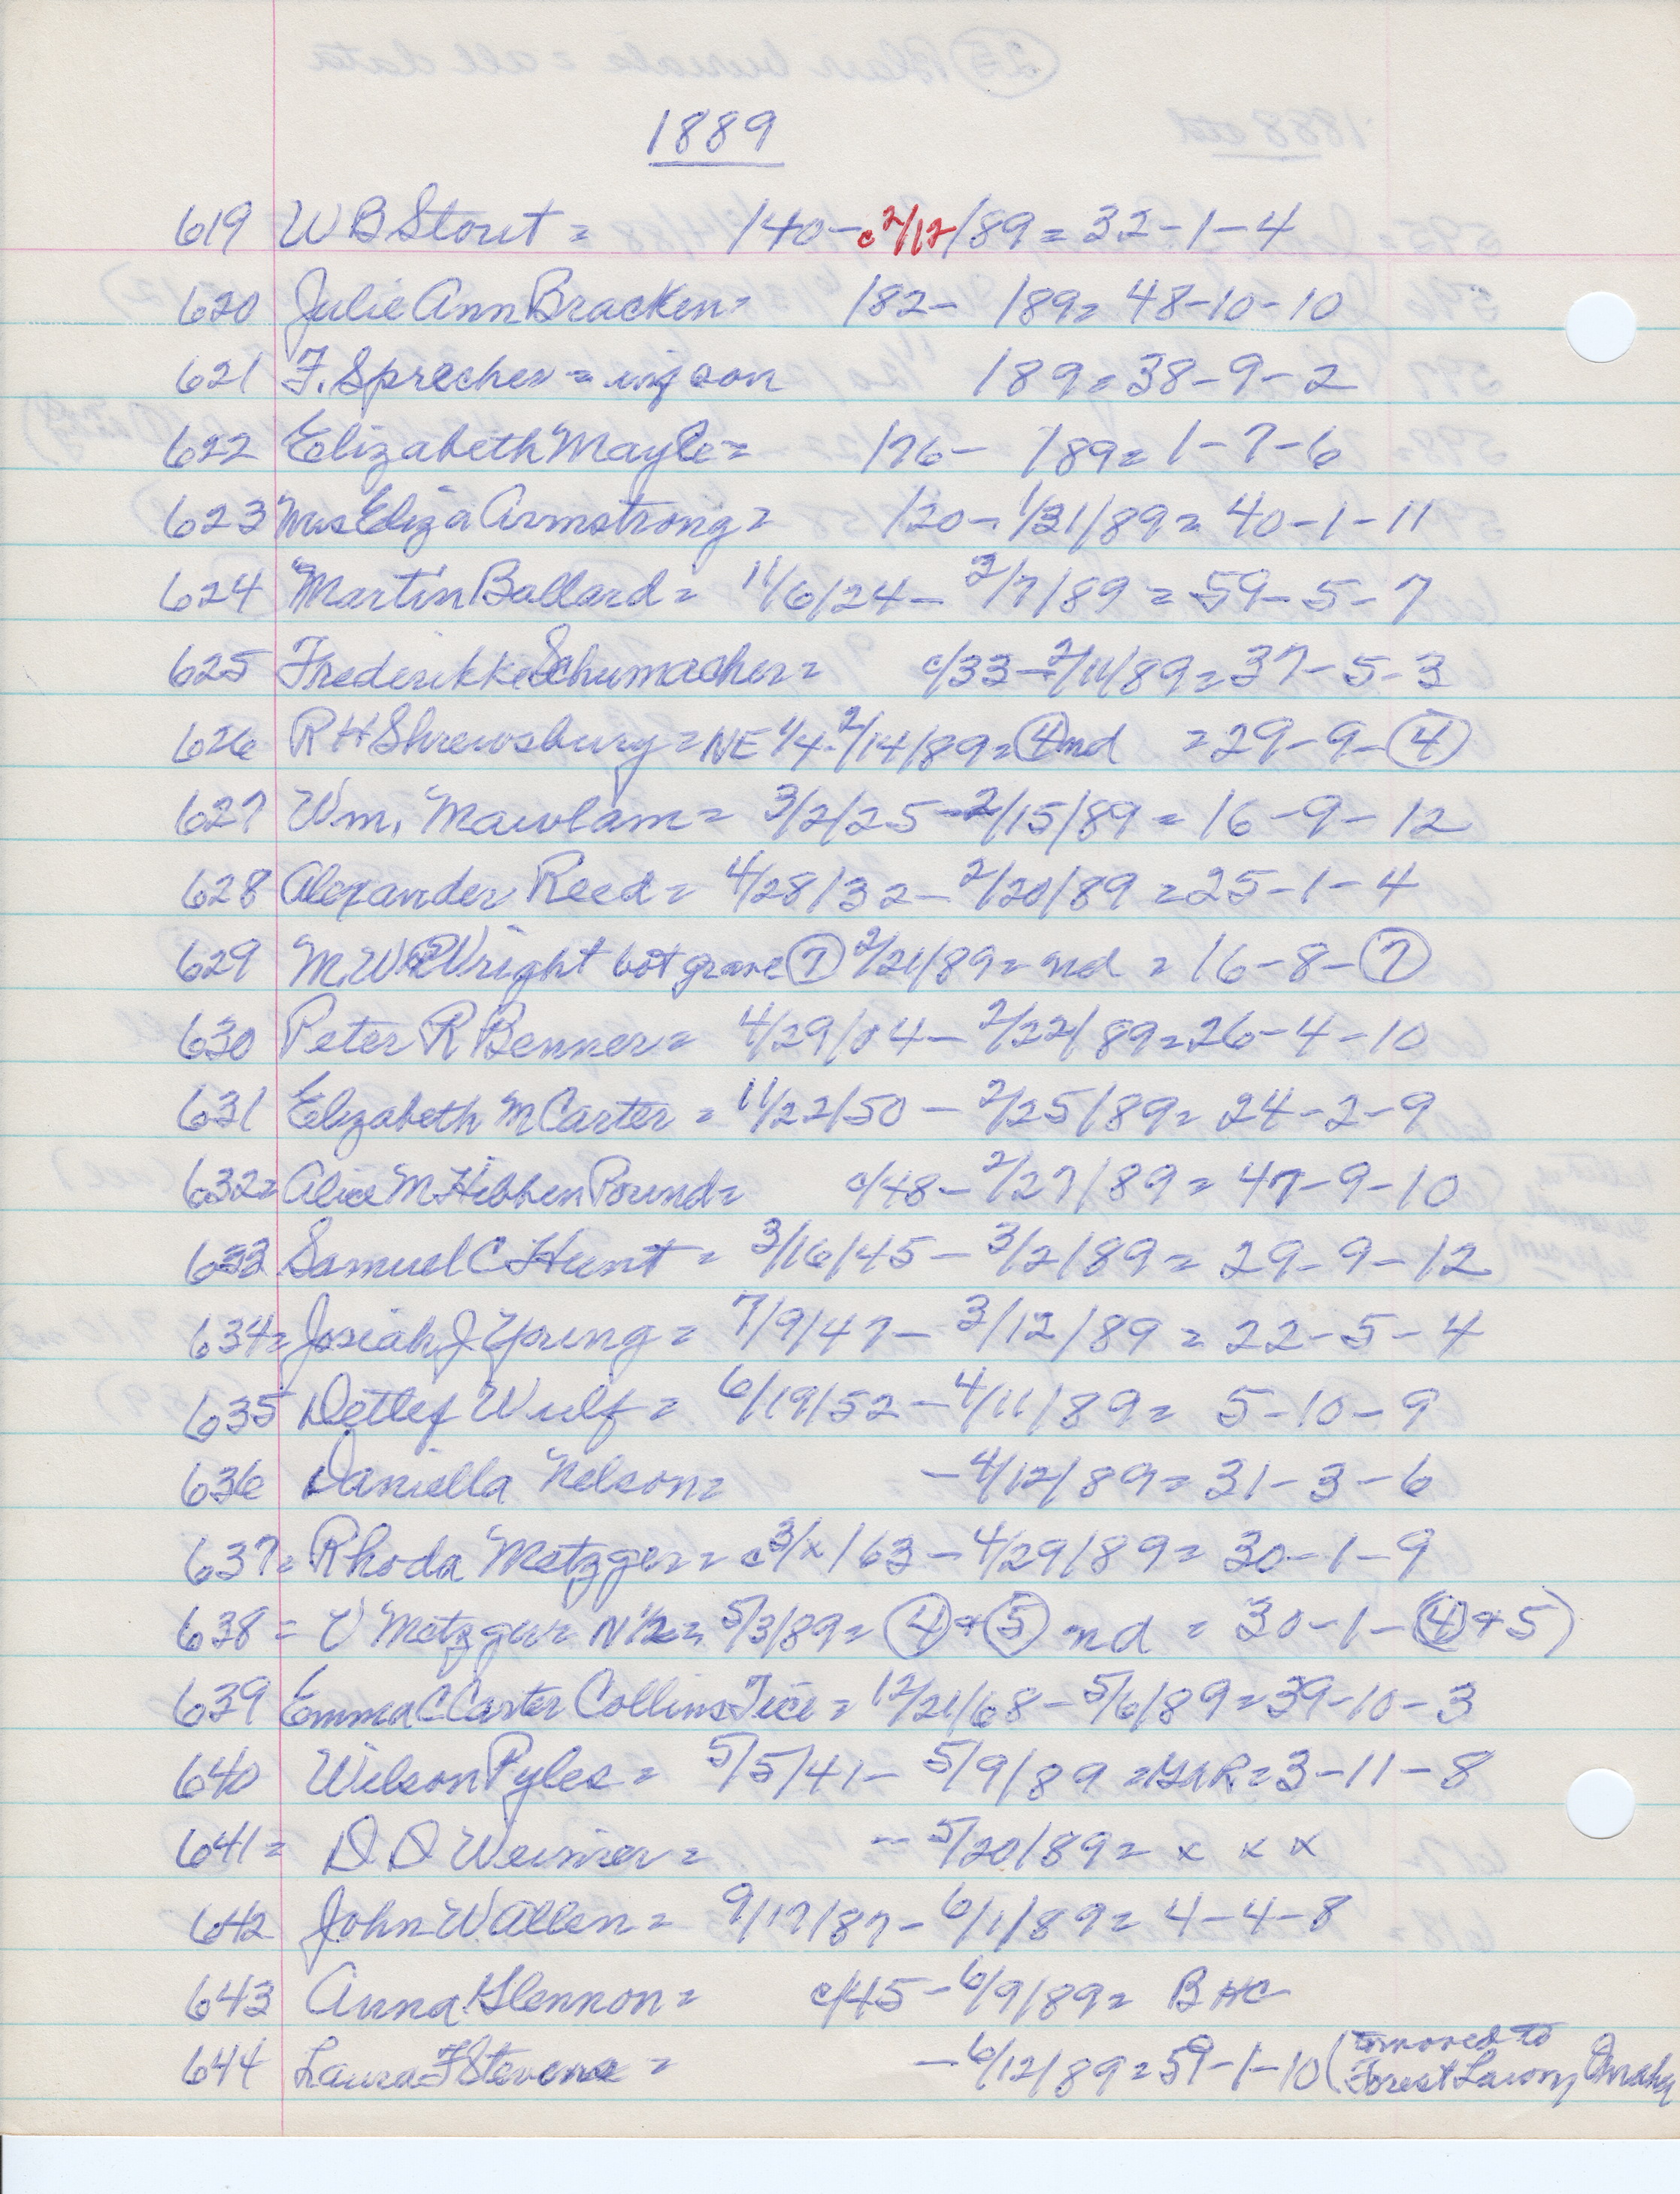 1889
619 W B Stout = /40 - c 2/12/89 = 32-1-4
620 Julie Ann Bracken = /82 - /89 = 48-10-10
621 F. Sprecher = inf son /89 = 38-9-2
622 Elizabeth Mayle = /76 - /89 = 1-7-6
623 Mrs Eliza Armstrong = /20 - 1/31/89 = 40-1-11
624 Martin Ballard = 11/6/24 - 2/7/89 = 59-5-7
625 Frederikke Schumacher = c/33 - 2/11/89 = 37-5-3
626 R H Shrewsbury = NE 1/4 - 2/14/89 = 4 nd = 29-9-4
627 Wm. Mawlam = 3/2/25 - 2/15/89 = 16-9-12
628 Alexander Reed = 4/28/32 - 2/20/89 = 25-1-4
629 M. W. Wright bot grave 7 2/21/89 = nd = 16-8-7
630 Peter R Benner = 4/29/04 - 2/22/89 = 26-4-10
631 Elizabeth M Carter = 11/22/50 - 2/25/89 = 24-2-9
632 = Alice M Hibben Pound = c/48 - 2/27/89 = 47-9-10
633 Samuel C Hunt = 3/16/45 - 3/2/89 = 29-9-12
634 = Josiah J Young = 7/9/47 - 3/12/89 = 22-5-4
635 Detlef Wulf = 6/19/52 - 4/11/89 = 5-10-9
636 Daniella Nelson = - 4/12/89 = 31-3-6
637 = Rhoda Metzger = c 3/x/63 - 4/29/89 = 30-1-9
638 = V Metzger N 1/2 = 5/3/89 = 4 + 5 nd = 30-1-4+5)
639 Emma C Carter Collins Tice = 12/21/68 - 5/6/89 = 39-10-3
640 Wilson Pyles = 5/5/41 - 5/9/89 = GAR = 3-11-8
641 = D D Weimer = - 5/20/89 = x x x
642 John W Allen = 9/17/87 - 6/1/89 = 4-4-8
643 Anna Glennon = c/45 - 6/9/89 = B HC
644 Laura F Stevens = - 6/12/89 = 59-1-10 (removed to Forest Lawn, Omaha